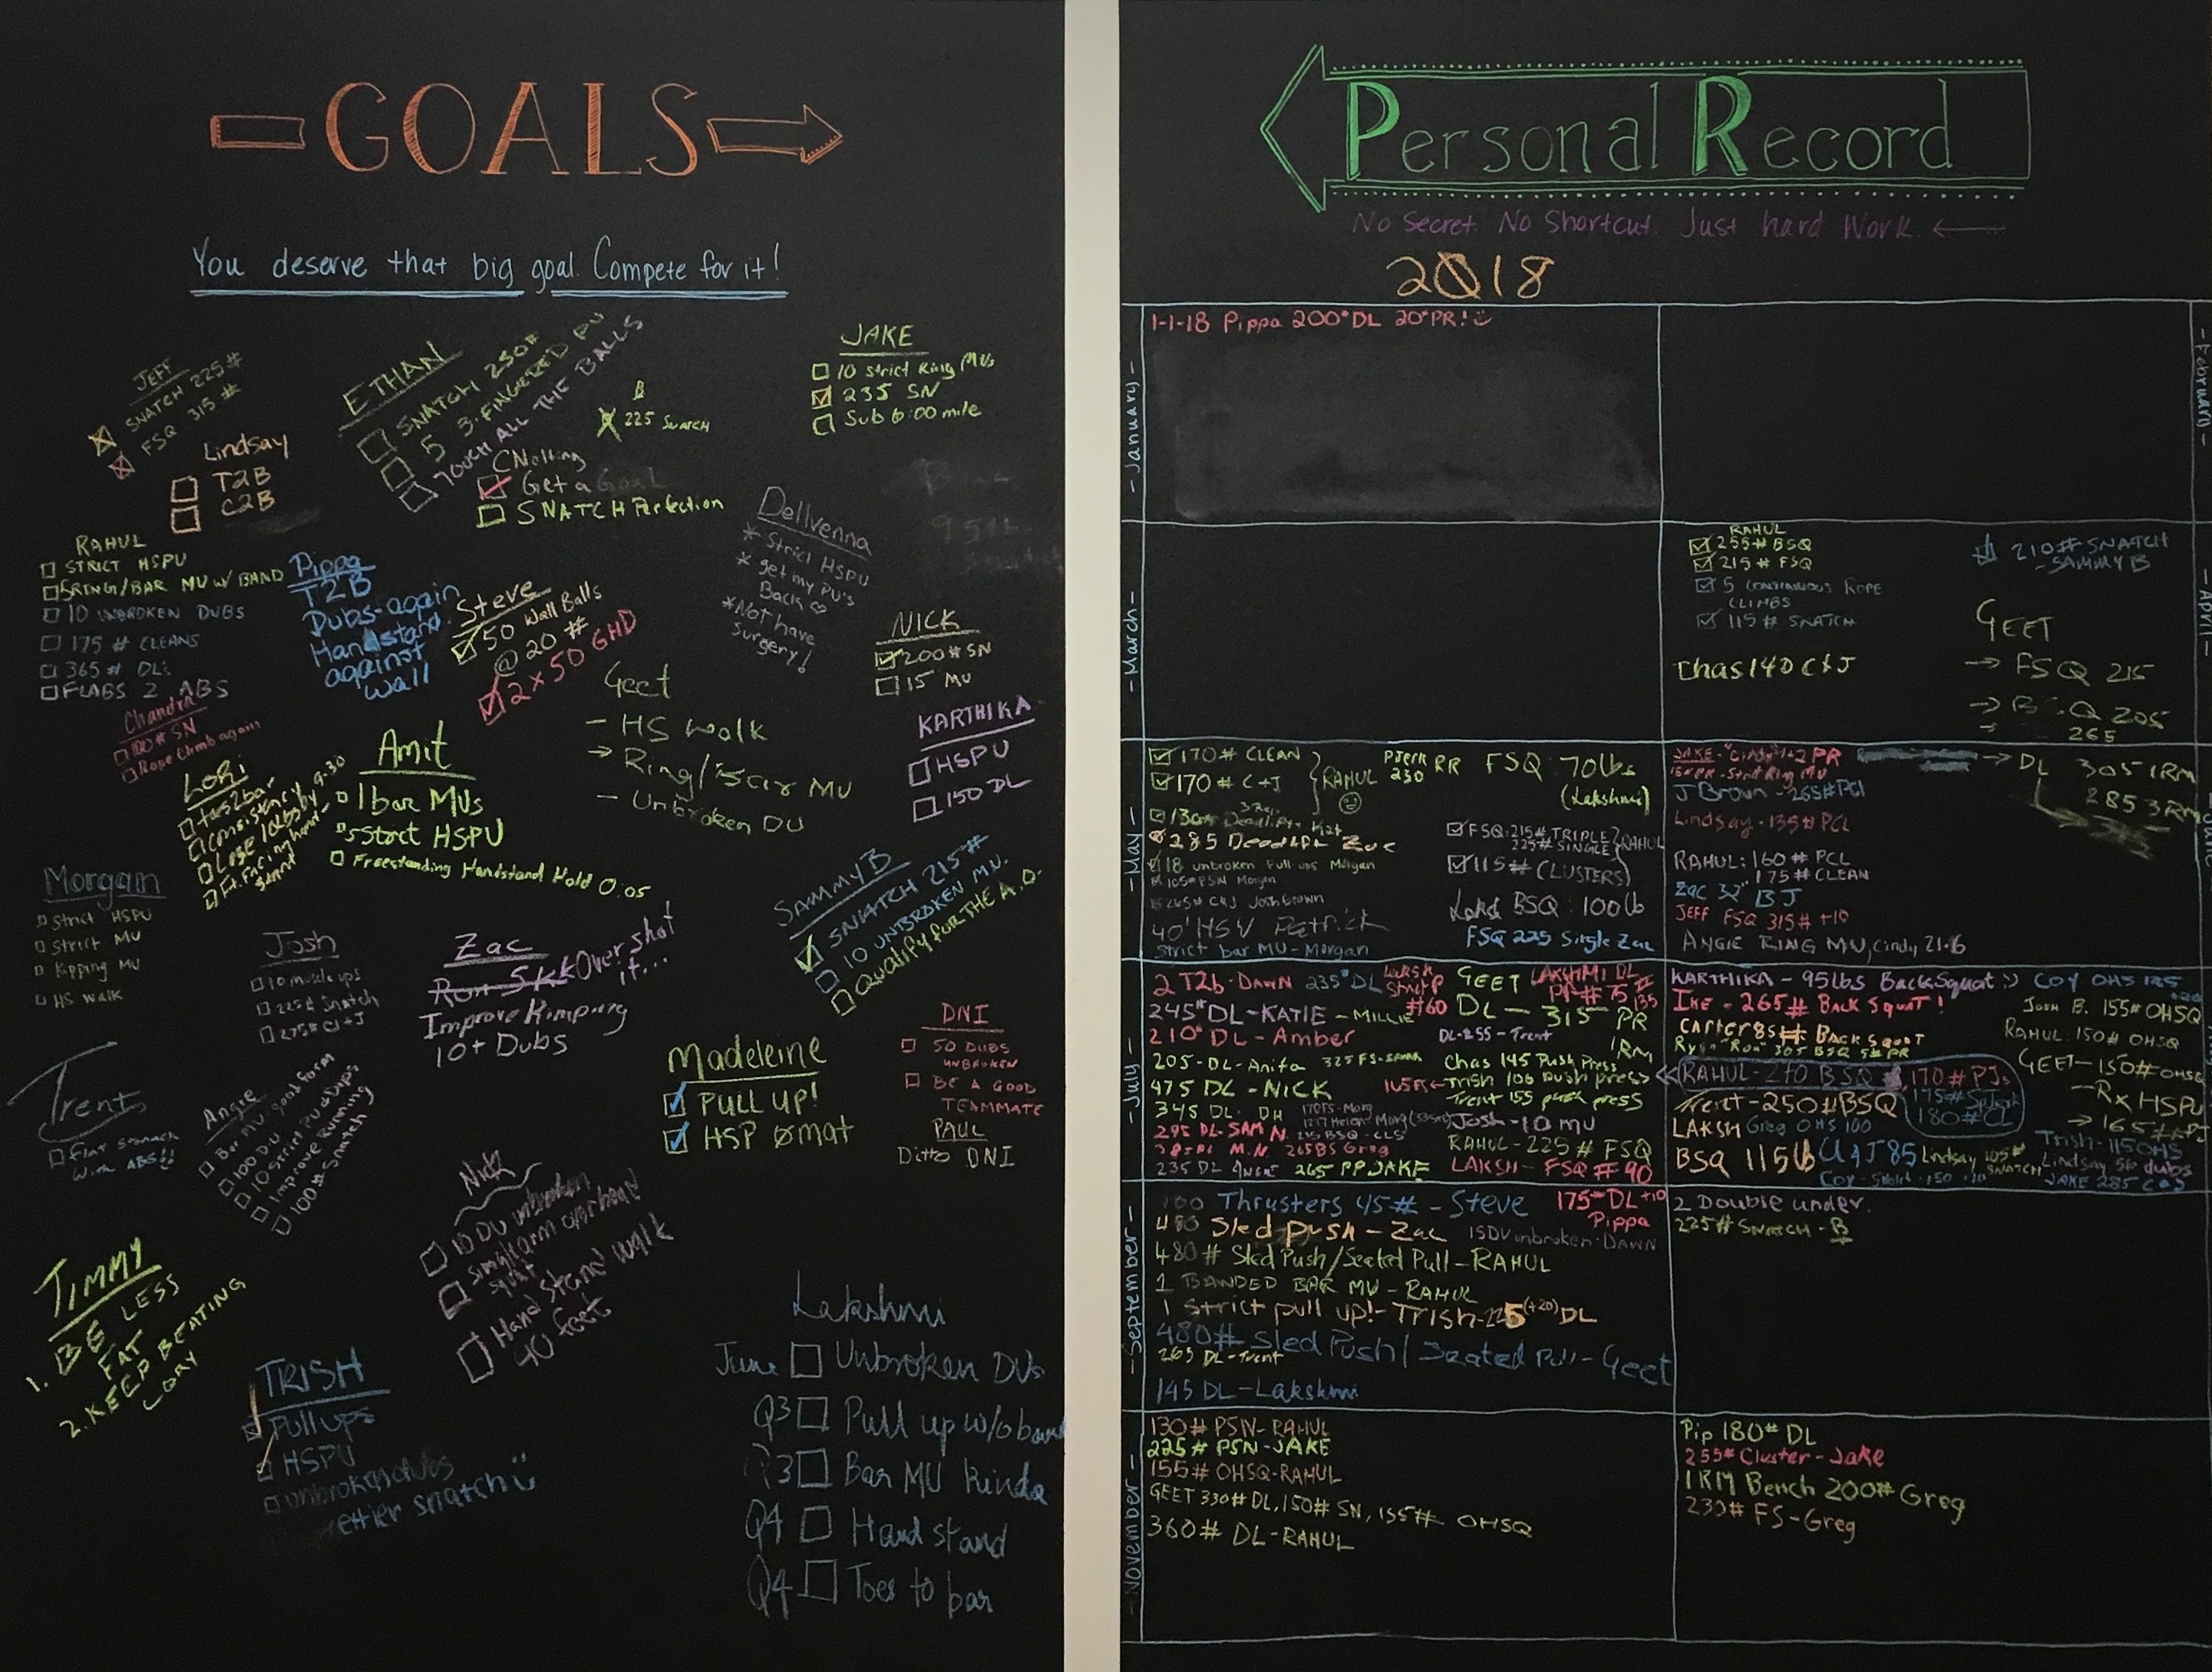 GOALS
You deserve that big goal. Compete for it!
JEFF
SNATCH 225#
FSQ 315 #
Lindsay
T2B
C2B
ETHAN
SNATCH 250#
5 3-FINGERED PU
TOUCH ALL THE BALLS
B
225 SNATCH
CNolting
Get a Goal
SNATCH Perfection
JAKE
10 strict Ring MUs
235 SN
Sub 6:00 mile
RAHUL
STRICT HSPU
5 RING/BAR MU W/ BAND
10 UNBROKEN DUBS
175 # CLEANS
365 # DL's
FLABS 2 ABS
Pippa
T2B
Dubs-again
Handstand
against
wall
Steve
50 Wall Balls
@ 20 #
2 x 50 GHD
Dellvenna
* Strict HSPU
* get my PU's
Back
* Not have
surgery!
NICK
200# SN
15 MU
KARTHIKA
HSPU
150 DL
Chandra
100# SN
Rope Climb again
Lori
toes2bar
Consistency
Lose 10lbs by 9-30
Ft. facing hand-
stand
Amit
1 bar MUs
5 Strict HSPU
Freestanding Handstand Hold 0:05
Geet
- HS Walk
→ Ring/Bar MU
- Unbroken DU
Morgan
Strict HSPU
Strict MU
Kipping MU
HS WALK
Josh
10 muscle ups
225# Snatch
275# Cl + J
Zac
Run 5k Over shot
it...
Improve Rimping
10+ Dubs
SAMMY B
SNATCH 215#
10 UNBROKEN MU.
Qualify FOR THE A.O.
Trent
Flat Stomach
With ABS!!
Angie
Bar MU-good form
100 DU
10 Strict PU & Dips
Improve Running
100# Snatch
Madeleine
PULL UP!
HSP 0 mat
DNI
50 DUBS
UNBROKEN
BE A GOOD
TEAMMATE
PAUL
Ditto DNI
Nick
10 DU unbroken
single arm overhead
squat
Hand Stand walk
40 feet
TIMMY
1. BE LESS
FAT
2. KEEP BEATING
CORY
TRISH
Pull ups
HSPU
unbroken dubs
ettier snatch
Lakshmi
June Unbroken DUs
Q3 Pull up w/o band
Q3 Bar MU kinda
Q4 Hand stand
Q4 Toes to bar
Personal Record
No Secret. No Shortcut. Just hard Work.
2018
- January -
1-1-18 Pippa 200# DL 20# PR!
- February -
- March -
RAHUL
255# BSQ
215# FSQ
5 CONTINUOUS ROPE
CLIMBS
115# SNATCH
Chas 140 C&J
210# SNATCH
- SAMMY B
GEET
→ FSQ 215
→ BSQ 205
265
- May -
170# CLEAN
170# C+J
RAHUL
PJerk RR
230
FSQ: 70lbs
(Lakshmi)
285 Deadlift Zac
18 unbroken Pull-ups Morgan
105# PSN Morgan
265# C&J Josh Brown
40' HSW Patrick
Strict bar MU - Morgan
FSQ: 215# TRIPLE
225# SINGLE
RAHUL
115# (CLUSTERS)
Laksh BSQ: 100lb
FSQ 225 Single Zac
JAKE - "Cindy" 1+2 PR
J Brown - 265# PCl
Lindsay - 135# PCL
RAHUL: 160# PCL
175# CLEAN
Zac 32" BJ
JEFF FSQ 315# +10
ANGIE RING MU, Cindy 21.6
→ DL 305 1RM
285 3RM
- July -
2 T2b - DAWN 235# DL
245# DL - KATIE - MILLIE
210# DL - Amber
205 - DL - Anita
475 DL - NICK
345 DL - DH
295 DL - SAM N.
235 DL Angie 265 PP JAKE
GEET
DL - 315 PR
LAKSHMI DL
DL-255 - Trent
Chas 145 Push Press
Trish 106 push press
Trent 155 push press
Josh - 10 MU
215 BSQ - CLS
265 BS Greg
RAHUL - 225 # FSQ
LAKSH - FSQ # 90
KARTHIKA - 95lbs Back Squat
IKE - 265# Back Squat!
Carter 85# Back Squat
Ryan 305 BSQ 5# PR
RAHUL - 270 BSQ
170# PJs
180# CL
Trent - 250# BSQ
LAKSH Greg OHS 100
BSQ 115lb C&J 85 Lindsay 105# SNATCH
Coy OHS 125
Josh B. 155# OHSQ
RAHUL 150# OHSQ
GEET - 150# OHSQ
- Rx HSPU
Trish - 115 OHS
Lindsay 56 dubs
JAKE 285 C&J
- September -
100 Thrusters 45# - Steve
175# DL +10
Pippa
480 Sled Push - Zac
15 DU unbroken - DAWN
480 # Sled Push/Seated Pull - RAHUL
1 BANDED BAR MU - RAHUL
1 Strict pull up! - Trish - 225 (+20) DL
480# Sled Push/Seated Pull - Geet
265 DL - Trent
145 DL - Lakshmi
2 Double under.
225# SNATCH - B
- November -
130# PSN - RAHUL
225# PSN - JAKE
155# OHSQ - RAHUL
GEET 330# DL, 150# SN, 155# OHSQ
360# DL - RAHUL
Pip 180# DL
255# Cluster - Jake
1RM Bench 200# Greg
230# FS - Greg